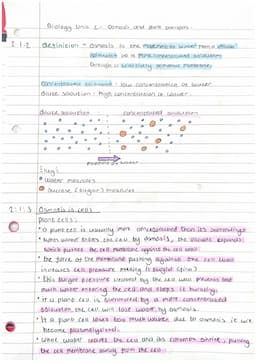 Biology Unit 2 - Osmosis and plant transport.
2:1:2 definition - Osmosis is the movement of water from a dilute
solution to a more concentrated solution
through a selectively permeable membrane.
Concentrated solution - low concentration of water
dilute solution - high concentration of water.
dilute solution concentrated solution
movement of water
Key:
water molecules
Sucrose (sugar) molecules
2:1:3 Osmosis in cells
Plant cells:
• a plant cell is usually more concentrated than its surroundings
• When water enters the cell by osmosis, the vacuole expands
which pushes the cell membrane against the cell wall.
• the force of the membrane pushing against the cell wall
increases cell pressure making it turgid (firm)
• this turgor pressure created by the cell wall prevents too
much water entering the cell and stops it bursting.
• if a plant cell is surrounded by a more concentrated
solution, the cell will lose water by osmosis.
• If a plant cell loses too much water due to osmosis it will
become plasmolysed.
• When water leaves the cell and its contents shrink, pulling
the cell membrane away from the cell